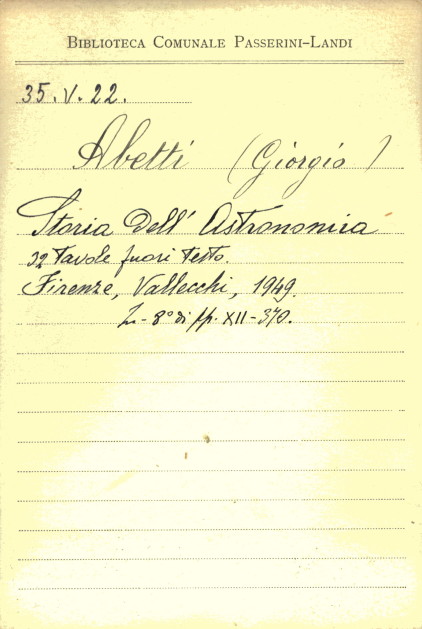 BIBLIOTECA COMUNALE PASSERINI-LANDI
35. V. 22.
Abetti (Giorgio)
Storia Dell' Astronomia
32 tavole fuori testo.
Firenze, Vallecchi, 1949.
In-8° di pp. XII-370.